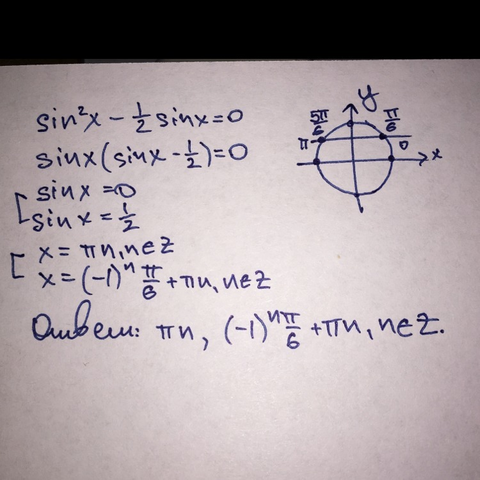 sin²x - 1/2 sinx = 0
sinx(sinx - 1/2) = 0
[ sinx = 0
sinx = 1/2
[ x = πn, n∈Z
x = (-1)ⁿ π/6 + πn, n∈Z
Ответ: πn, (-1)ⁿ π/6 + πn, n∈Z.
y
5π/6
π/6
π
0
x